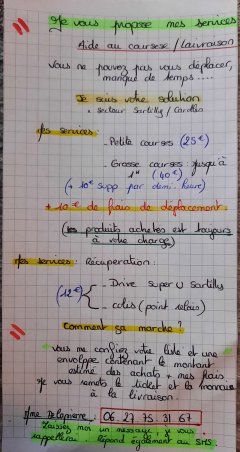 Je vous propose mes services
Aide au courses / Livraison
Vous ne pouvez pas vous déplacer,
manque de temps.....
Je suis votre solution
* secteur Sartilly / Carolles
Mes services
- Petite courses (25€)
- Grosse courses : jusqu'à
1H (40€)
(+ 10€ supp par demi-heure)
+ 10€ de frais de déplacement
(les produits achetés est toujours
à votre charge)
Mes services : Récupération :
- Drive super U Sartilly
(12€)
- colis (point relais)
Comment ça marche ?
Vous me confiez votre liste et une
enveloppe contenant le montant
estimé des achats + mes frais.
Je vous remets le ticket et la monnaie
à la livraison.
Mme Delapierre : 06 27 75 31 67
Laissez moi un message, je vous
rappellerai Répond également au SMS.